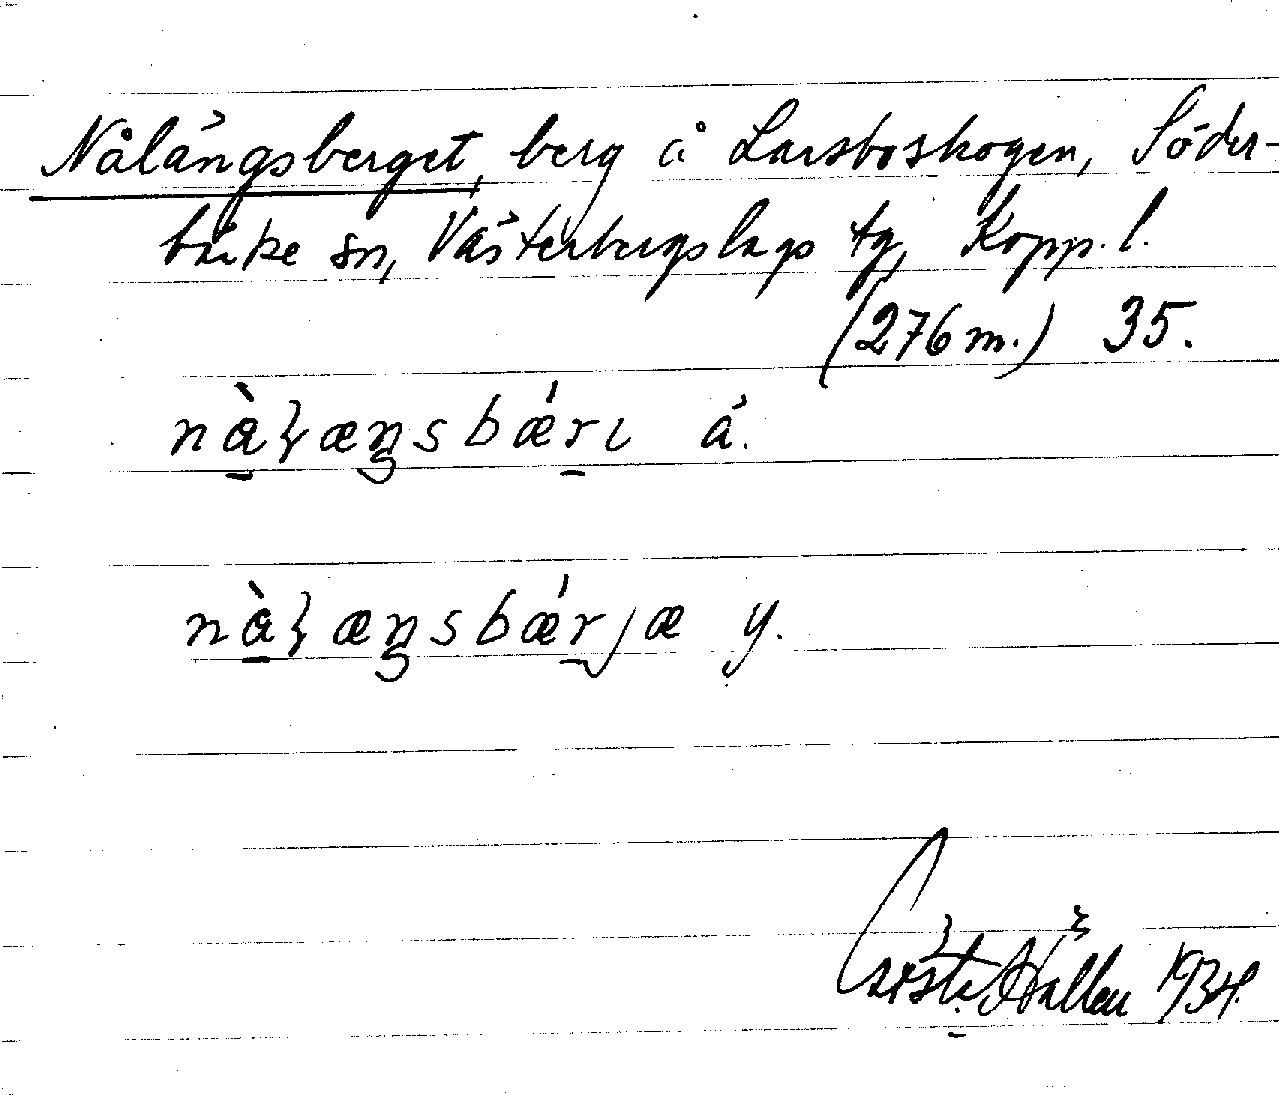 Nålångsberget, berg å Larsboskogen, Söder-
bärke sn, Västerbergslags tg, Kopp. l.
(276 m.) 35.
nàlæŋsbǽrı ä.
nàlæŋsbǽrjæ y.
Gösta Hallén 1934.